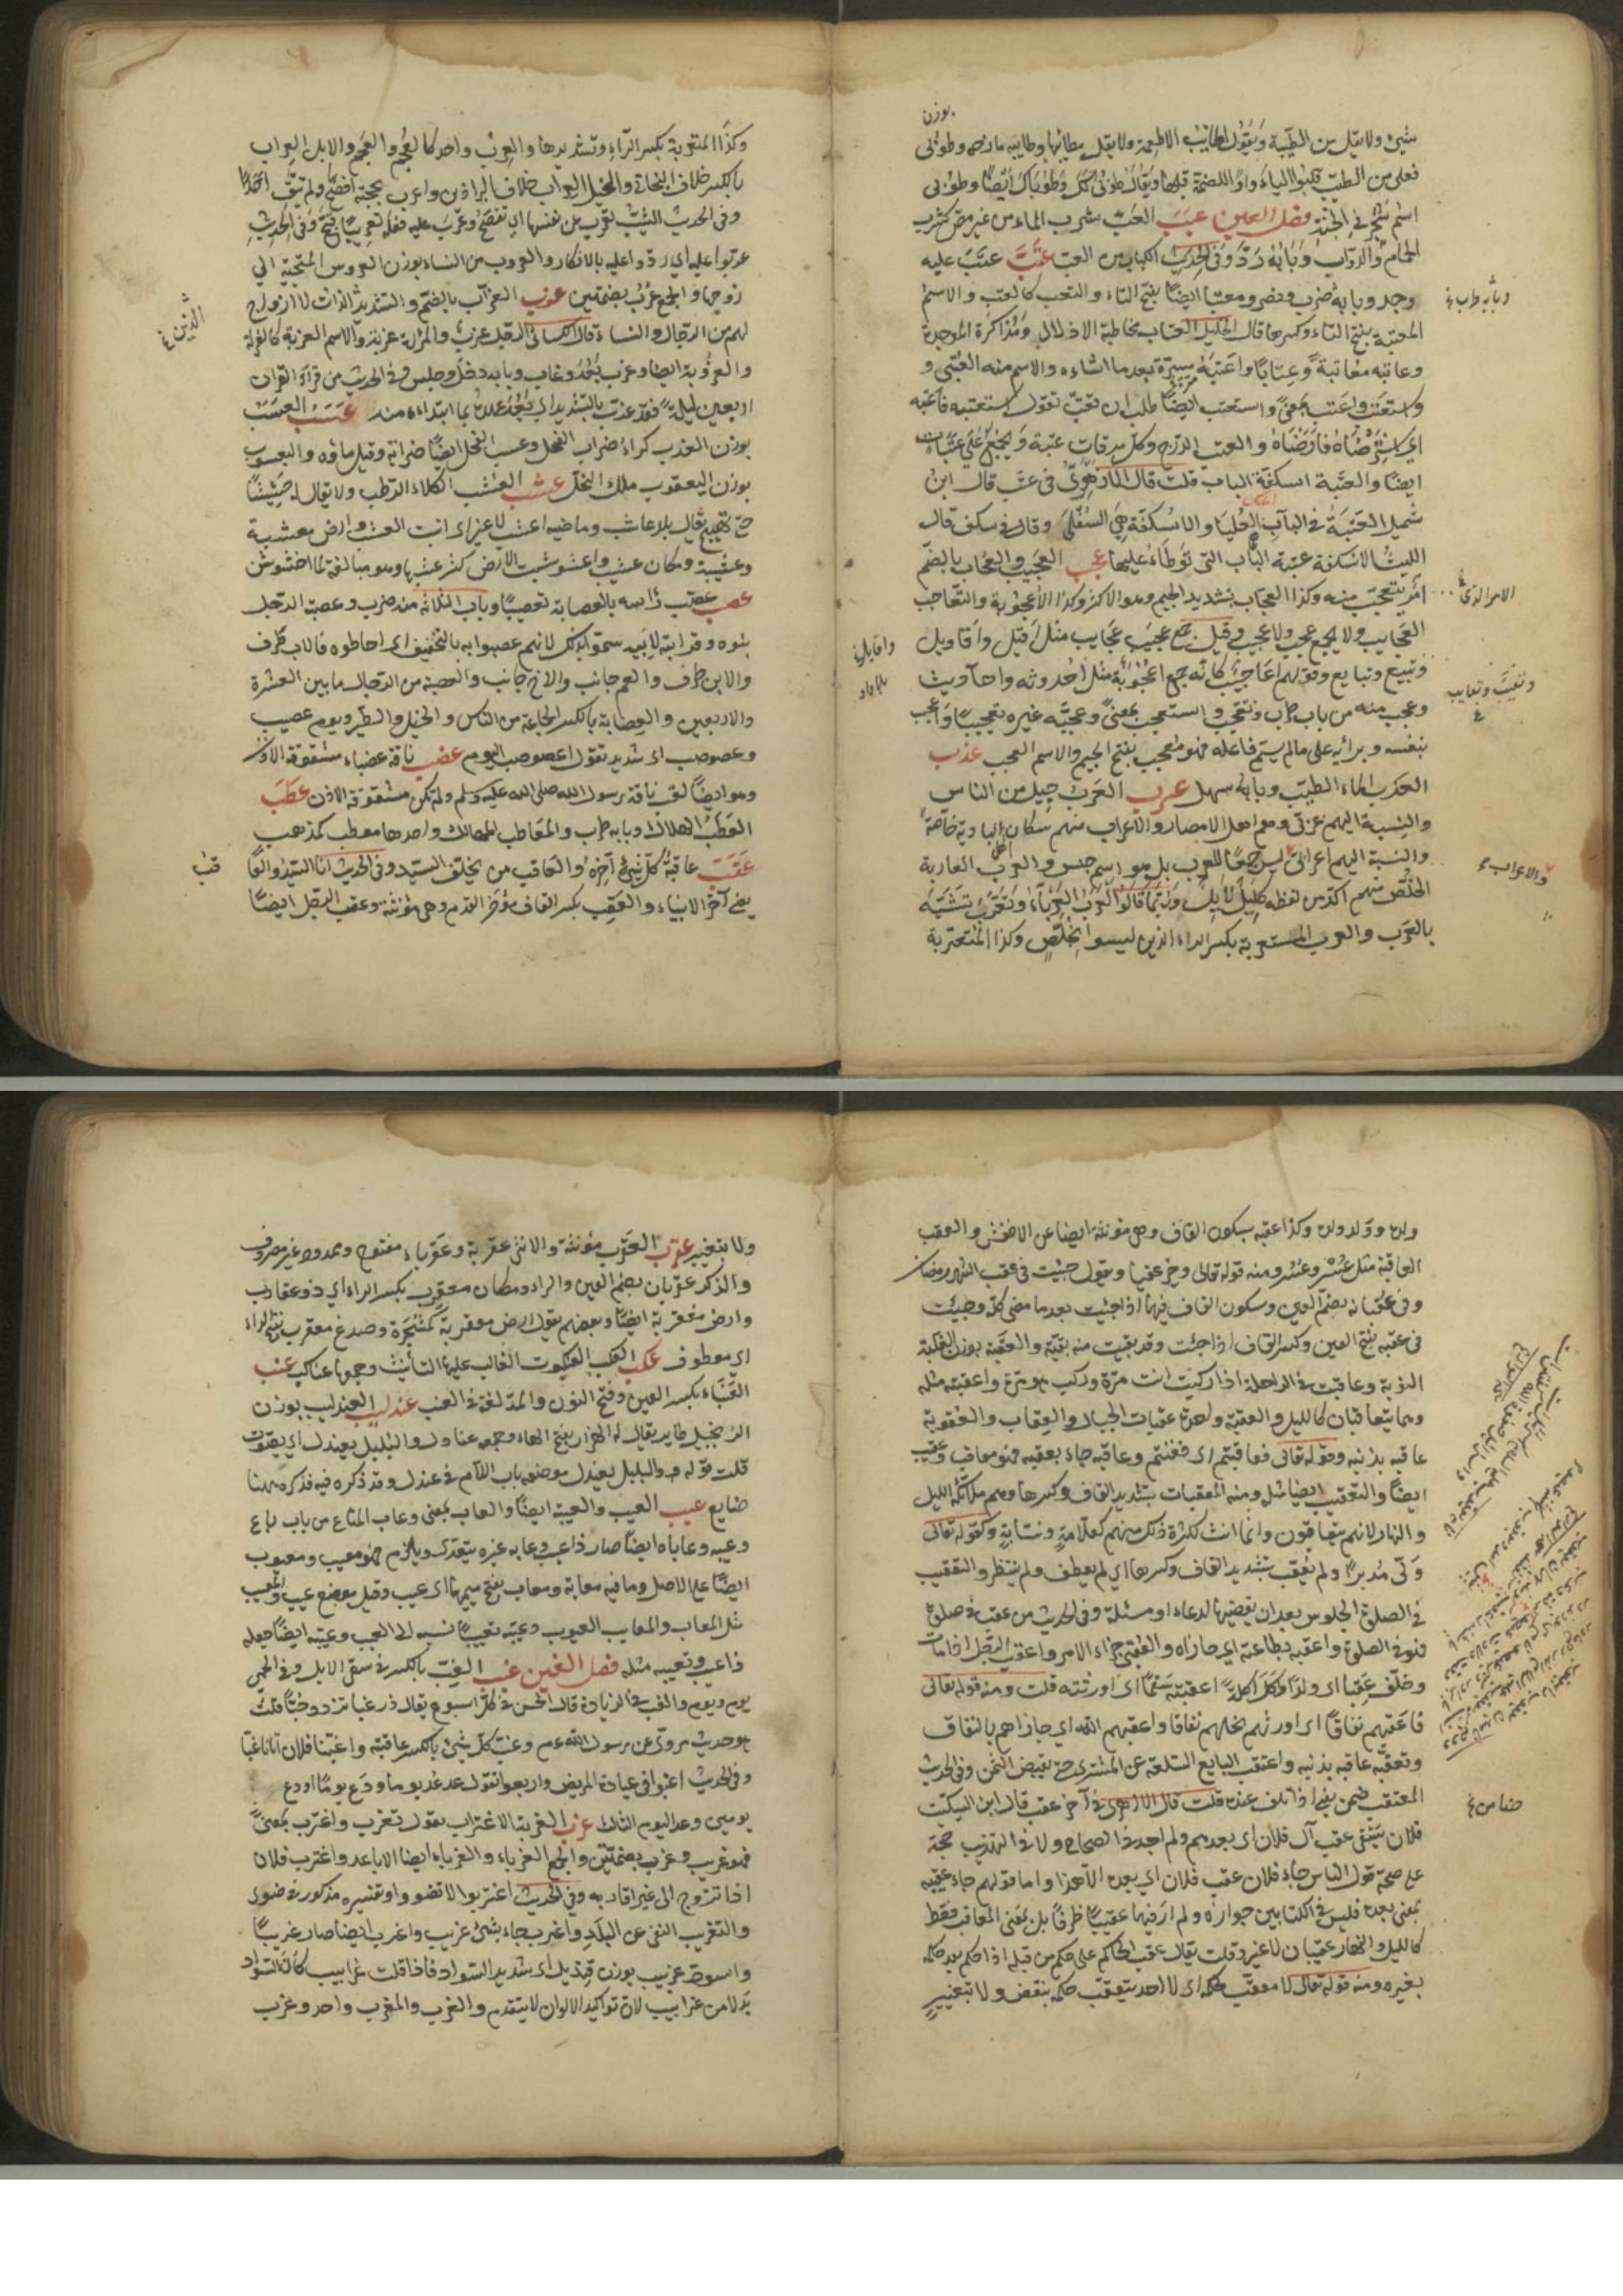 بوزن
شيئ ولا يقل من الطيبة وتقول اطايب الاطعمة ولا يقل مطايبها وطايبه مازحه وطوبى
فعلى من الطيب قلبوا الياء واوا للضمة قبلها ويقال طوبى لك وطوباك ايضا وطوبى
اسم شجر في الجنة فصل العين عبب العب شرب الماء من غير مص كشرب
الحمام والدواب وبابه رد وفى الحديث الكباد من العب عتب عتب عليه
وجد وبابه ضرب ونصر ومعتبا ايضا بفتح التاء والتعتب كالعتب والاسم
المعتبة بفتح التاء وكسرها قال الخليل العتاب مخاطبة الادلال ومذاكرة الموجدة
وعاتبه معاتبة وعتابا واعتبه مسرة بعد ما اساءه والاسم منه العتبى و
واستعتب واعتب بمعنى واستعتب ايضا طلب ان يعتب تقول استعتبه فاعتبه
اي استرضاه فارضاه والعتب الدرج وكل مرقات عتبة ويجمع على عتبات
ايضا والعتبة اسكفة الباب قلت قال الازهرى فى عتب قال ابن
شميل العتبة في الباب العليا والاسكفة هي السفلى وقال في سكف قال
الليث الاسكفة عتبة الباب التى توطاء عليها عجب العجيب والعجاب بالضم
امر يتعجب منه وكذا العجاب بتشديد الجيم وهو الاكثر وكذا الاعجوبة والتعاجيب
العجايب ولا يجمع عجب ولا عجيب وقيل جمع عجيب عجايب مثل افيل وافاويل
وتبيع وتبايع وقولهم اعاجيب كانه جمع اعجوبة مثل احدوثه واحاديث
وعجب منه من باب طرب وتعجب واستعجب بمعنى وعجبه غيره تعجيبا واعجب
بنفسه وبرائه على ما لم يسم فاعله فهو معجب بفتح الجيم والاسم العجب عذب
العذب الماء الطيب وبابه سهل عرب العرب جيل من الناس
والنسبة اليهم عربى وهم اهل الامصار والاعراب منهم سكان البادية خاصة
والنسبة اليهم اعرابى ليس جمعا للعرب بل هو اسم جنس والعرب العاربة
الخلص منهم اكد من لفظه كليل لايل وربما قالوا العرب العرباء وتعرب تشبه
بالعرب والعرب المستعربة بكسر الراء الذين ليسوا بخلص وكذا المتعربة
وبابه طرب
الامر الذى
وتعيب وتعايب
والاعراب
وكذا المتعربة بكسر الراء وتشديدها والعرب واحد كالعجم والعجم والابل العراب
بالكسر خلاف البخاتى والخيل العراب خلاف البراذين واعرب بحجته افصح ولم يتق احدا
وفى الحديث الثيب تعرب عن نفسها اي تفصح وعرب عليه فعله تعريبا قبح وفى الحديث
عربوا عليه اي ردوا عليه بالانكار والعروب من النساء بوزن العروس المتحببة الى
زوجها والجمع عرب بضمتين عزب العزاب بالضم والتشديد الذين لا ازواج
لهم من الرجال والنساء قال الكسائى الرجل عزب والمراة عزبة والاسم العزبة كالعزلة
والعزوبة ايضا وعزب بعد وغاب وبابه دخل وجلس وفى الحديث من قراء القران
اربعين ليلة فقد عزب بالتشديد اي بعد عهده بما ابتداءه منه عسب العسب
بوزن العذب كراء ضراب الفحل وعسب الفحل ايضا ضرابه وقيل ماؤه واليعسوب
بوزن اليعقوب ملك النحل عشب العشب الكلاء الرطب ولا يقال له حشيشا
حتى يهيج يقال بلد عاشب وماضيه اعشب لا غير اى انبت العشب وارض معشبة
وعشيبة ومكان عشيب واعشوشبت الارض كثر عشبها وهو مبالغة كاخشوشن
عصب عصب راسه بالعصابة تعصيبا وباب الثلاثة منه ضرب وعصبة الرجل
بنوه وقرابته لابيه سموا بذلك لانهم عصبوا به بالتخفيف اى احاطوه فالاب طرف
والابن طرف والعم جانب والاخ جانب والعصبة من الرجال ما بين العشرة
والاربعين والعصابة بالكسر الجماعة من الناس والخيل والطير ويوم عصيب
وعصوصب اى شديد تقول اعصوصب اليوم عضب ناقة عضباء مشقوقة الاذن
وهو ايضا لقب ناقة رسول الله صلى الله عليه وسلم ولم تكن مشقوقة الاذن عطب
العطب الهلاك وبابه طرب والمعاطب المهالك واحدها معطب كمذهب
عقب عاقبة كل شيئ آخره والعاقب من يخلف السيد وفى الحديث انا السيد والعاقب
يعنى آخر الانبياء والعقب بكسر القاف مؤخر القدم وهى مؤنثة وعقب الرجل ايضا
الذين
قب
ولده وولد ولده وكذا عقبه بسكون القاف وهى مؤنثة ايضا عن الاخفش والعقب
العاقبة مثل عسر وعسر ومنه قوله تعالى وخير عقبا وتقول جئت فى عقب الشهر رمضان
وفى عقبانه بضم العين وسكون القاف فيهما اذا جئت بعد ما مضى كله وجئت
فى عقبه بفتح العين وكسر القاف اذا جئت وقد بقيت منه بقية والعقبة بوزن العلبة
النوبة وعاقبت فى الراحلة اذا ركبت انت مرة وركب هو مرة واعقبته مثله
وهما يتعاقبان كالليل والعقبة واحدة عقبات الجبال والعقاب والعقوبة
عاقبه بذنبه وقوله تعالى فعاقبتم اى فغنمتم وعاقبه جاء بعقبه فهو معاقب وعقيب
ايضا والتعقيب ايضا مثله ومنه المعقبات بتشديد القاف وكسرها وهم ملائكة الليل
والنهار لانهم يتعاقبون وانما انث لكثرة ذلك منهم كعلامة ونسابة وكقوله تعالى
ولى مدبرا ولم يعقب بتشديد القاف وكسرها اي لم يعطف ولم ينتظر والتعقيب
في الصلوة الجلوس بعد ان يقضيها لدعاء او مسئلة وفى الحديث من عقب فى صلوة
فهو فى الصلوة واعقبه بطاعته اي جازاه والعقبى جزاء الامر واعقب الرجل اذا مات
وخلف عقبا اى ولدا واكل اكلة اعقبته سقما اى اورثته قلت ومنه قوله تعالى
فاعقبهم نفاقا اى اورثهم بخلهم نفاقا واعقبهم الله اي جازاهم بالنفاق
وتعقبه عاقبه بذنبه واعتقب البايع السلعة عن المشترى حتى يقبض الثمن وفى الحديث
المعتقب ضمن يعنى اذا تلف عنده قلت قال الازهرى فى آخر عقب قال ابن السكيت
فلان يسقى عقب آل فلان اى بعدهم ولم اجد فى الصحاح ولا فى التهذيب حجة
على صحة قول الناس جاء فلان عقيب فلان اي بعده الا هذا واما قولهم جاء عقيبه
بمعنى بعده فليس فى الكتابين جوازه ولم ار فيهما عقيبا ظرفا بل بمعنى المعاقب فقط
كالليل والنهار عقيبان لا غير وقلت يقال عقب الحاكم على حكم من قبله اذا حكم بعد حكمه
بغيره ومنه قوله تعالى لا معقب لحكمه اى لا احد يتعقب حكمه بنقض ولا بتغيير
ضامن
ولا بتغيير عقرب العقرب مؤنثة والانثى عقربة وعقرباء مفتوح وممدود غير مصروف
والذكر عقربان بضم العين والراء ومكان معقرب بكسر الراء اي ذو عقارب
وارض معقربة ايضا وبعضهم يقول ارض معقربة كمشجرة وصدغ معقرب بفتح الراء
اي معطوف عكب العكب العنكبوت الغالب عليها التأنيث وجمعها عناكب عنب
العنباء بكسر العين وفتح النون والمد لغة فى العنب عندليب العندليب بوزن
الزنجبيل طاير يقال له الهزار بفتح الهاء وجمعه عنادل والبلبل يعندل اي يصوت
قلت قوله والبلبل يعندل موضعه باب اللام فى عندل وقد ذكره فيه فذكره ههنا
ضايع عيب العيب والعيبة ايضا والعاب بمعنى وعاب المتاع من باب باع
وعيبه وعابا ايضا صار ذا عيب وعابه غيره يتعدى ويلزم فهو معيب ومعيوب
ايضا على الاصل وما فيه معابة ومعاب بفتح ميمهما اى عيب وقيل موضع عيب والمعيب
مثل المعاب والمعايب العيوب وعيبه تعييبا نسبه الى العيب وعيبه ايضا جعله
ذا عيب وتعيبه مثله فصل الغين غبب الغب بالكسر فى سقى الابل وفى الحمى
يوم ويوم والغب فى الزيارة قال الحسن فى كل اسبوع يقال زر غبا تزدد حبا قلت
هو حديث مروى عن رسول الله عم وغب كل شيئ بالكسر عاقبته واغبنا فلان اتانا غبا
وفى الحديث اغبوا فى عيادة المريض واربعوا تقول عد غد يوما ودع يوما او دع
يومين وعد اليوم الثالث غرب الغربة الاغتراب تقول تغرب واغترب بمعنى
فهو غريب وغرب بضمتين والجمع الغرباء والغرباء ايضا الاباعد واغترب فلان
اذا تزوج الى غير اقاربه وفى الحديث اغتربوا لا تضووا وتفسيره مذكور فى ضوى
والتغريب النفى عن البلد واغرب جاء بشئ غريب واغرب ايضا صار غريبا
واسود غربيب بوزن قنديل اى شديد السواد فاذا قلت غرابيب كان السواد
بدلا من غرابيب لان تواكيد الالوان لا يتقدم والغرب والمغرب واحد وغرب